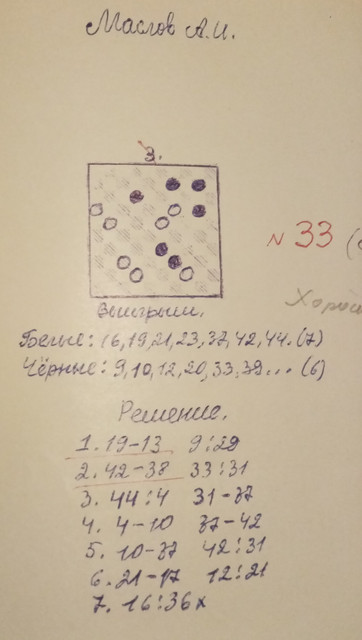 Маслов А.И.
3.
N 33
Выигрыш.
Белые: 16,19,21,23,37,42,44.(7)
Чёрные: 9,10,12,20,33,39... (6)
Решение.
1. 19-13 9:29
2. 42-38 33:31
3. 44:4 31-37
4. 4-10 37-42
5. 10-37 42:31
6. 21-17 12:21
7. 16:36x